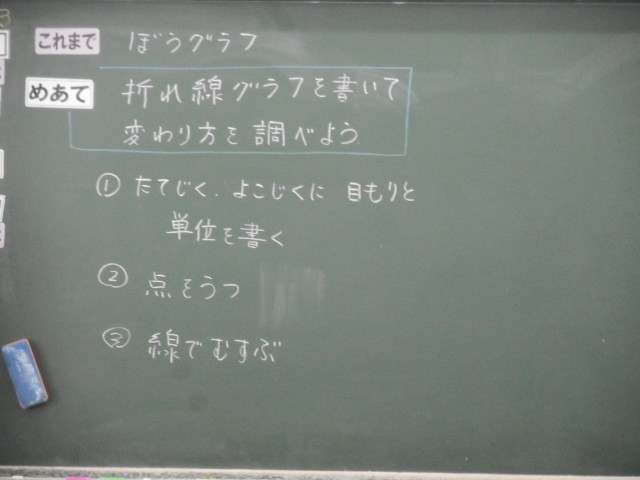 これまで ぼうグラフ
めあて 折れ線グラフを書いて
変わり方を調べよう
① たてじく、よこじくに 目もりと
単位を書く
② 点をうつ
③ 線でむすぶ